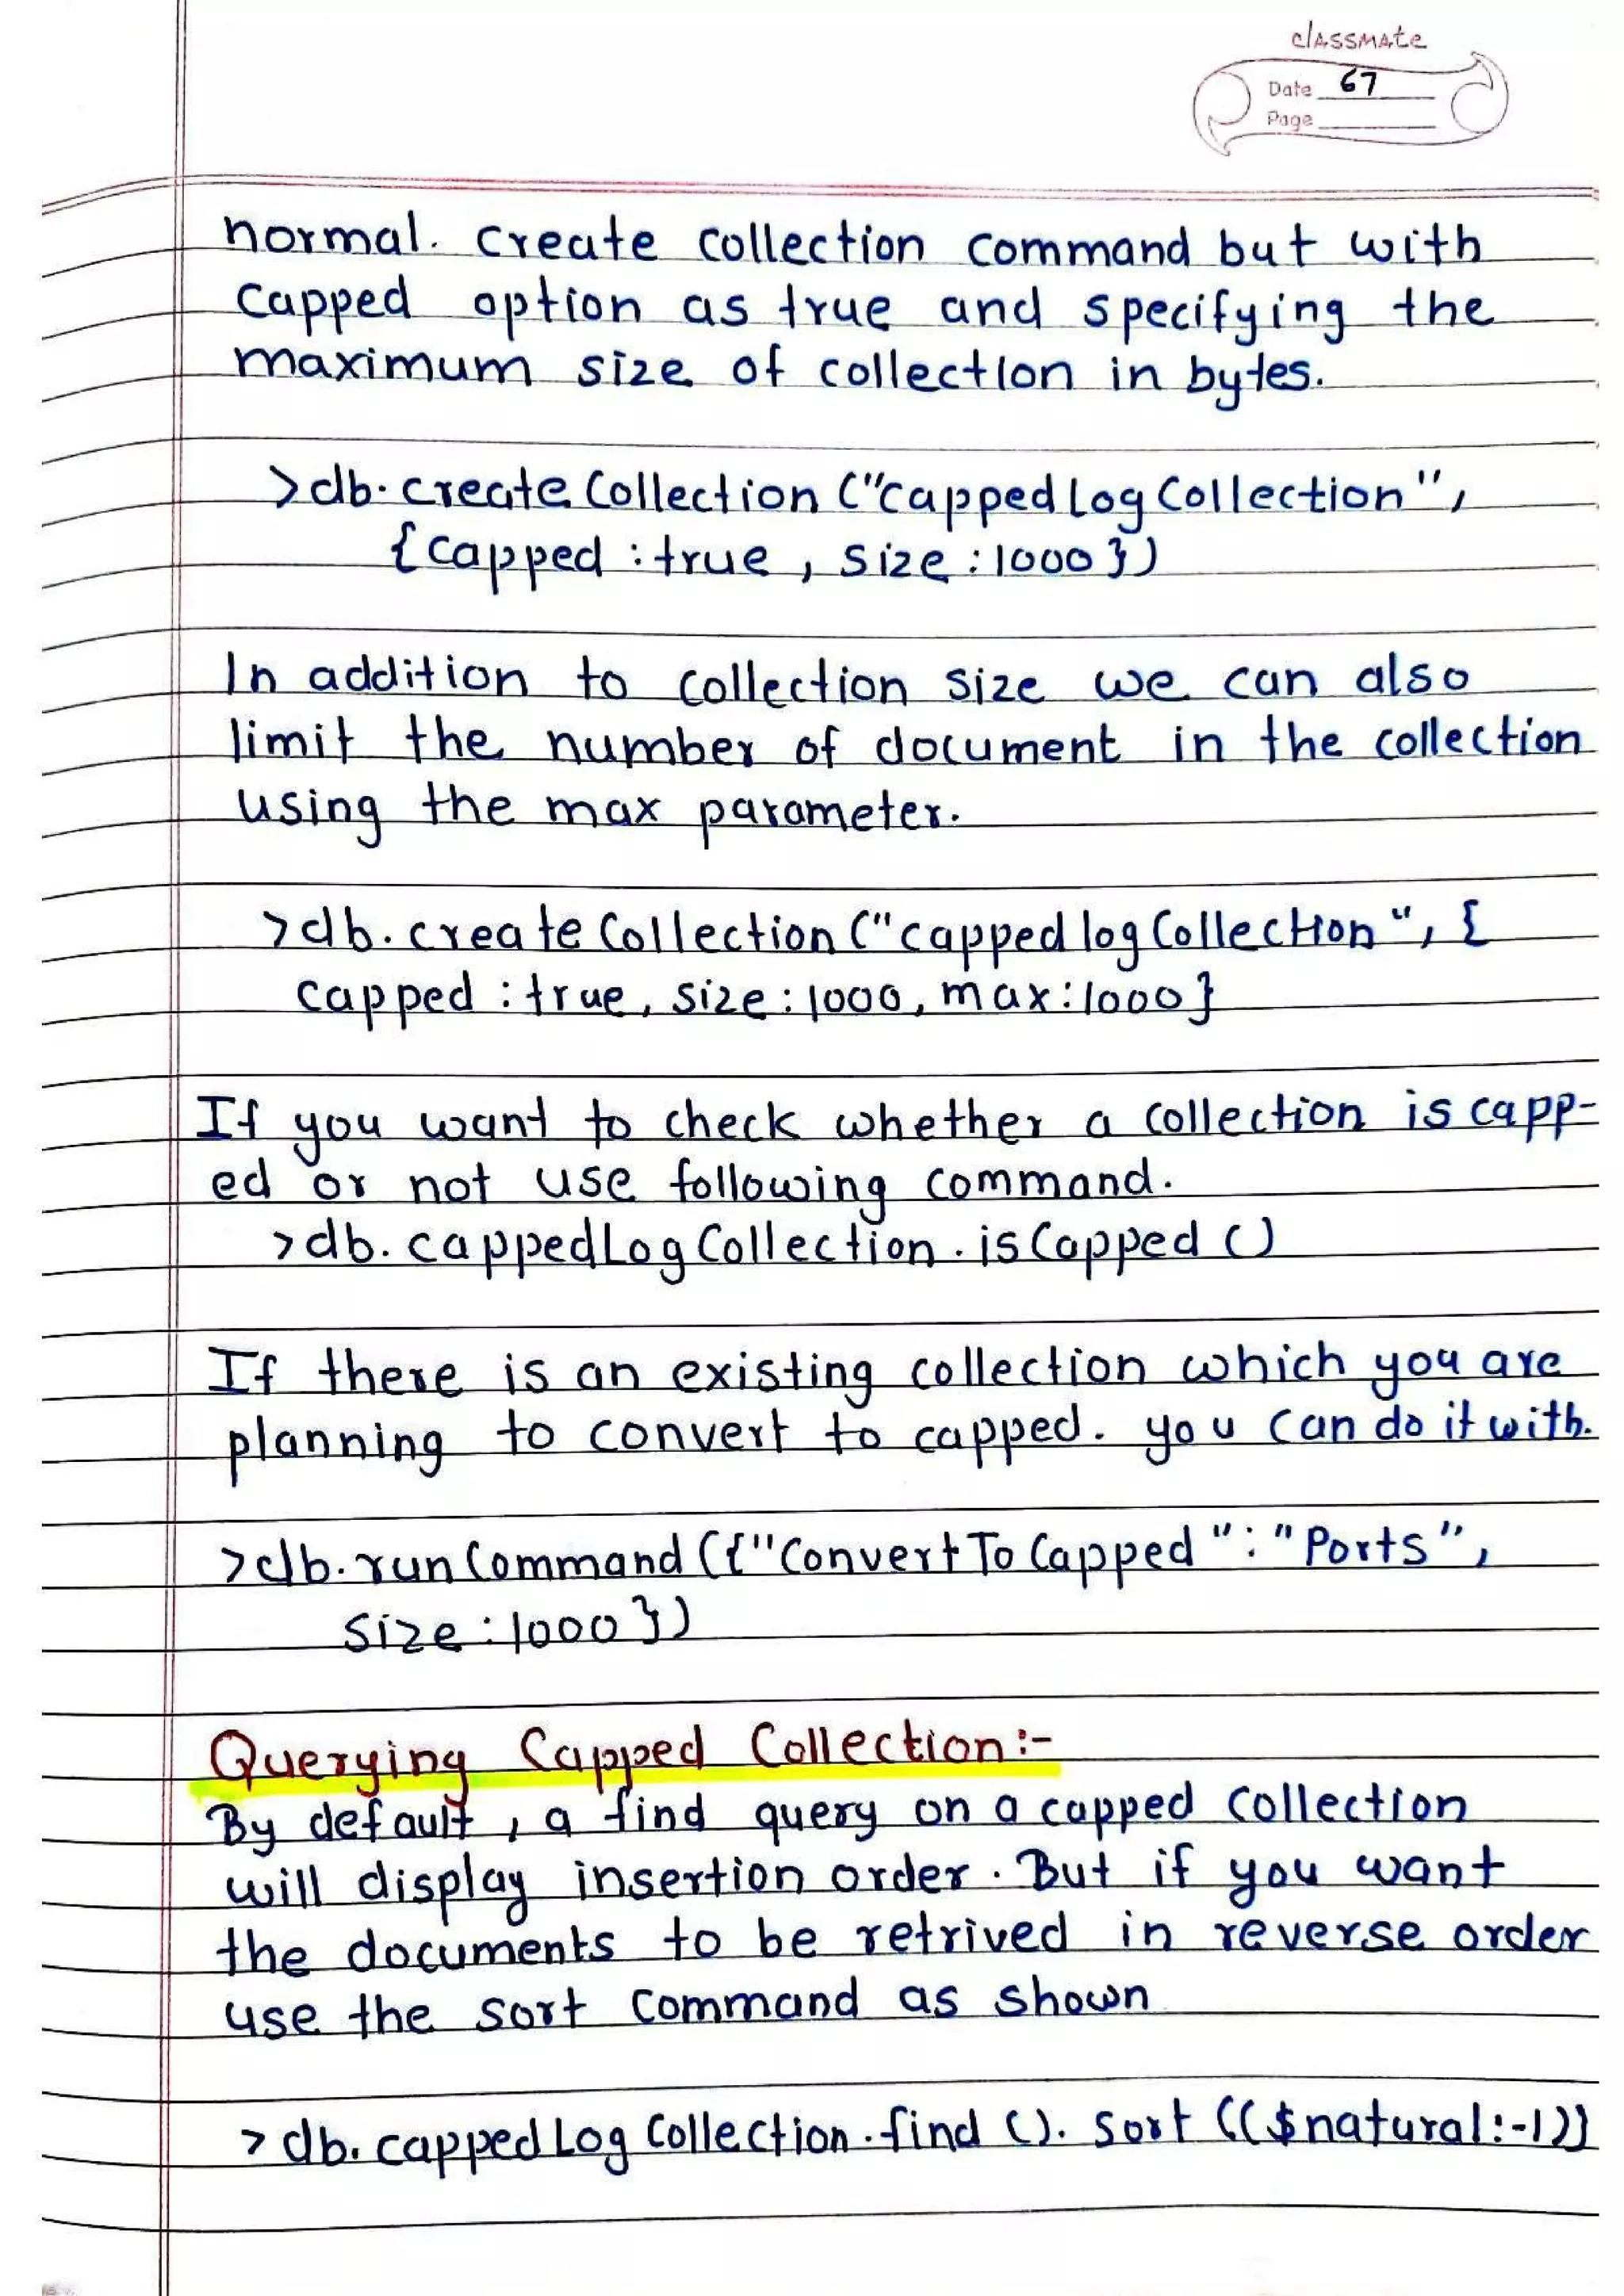 classmate
Date 67
Page
normal. create collection command but with
capped option as true and specifying the
maximum size of collection in bytes.
>db.createCollection ("cappedLogCollection",
{capped : true, size : 1000 })
In addition to collection size we can also
limit the number of document in the collection
using the max parameter.
>db.createCollection ("cappedlogCollection", {
capped : true, size : 1000, max : 1000}
If you want to check whether a collection is capp-
ed or not use following command.
>db.cappedLogCollection.isCapped ()
If there is an existing collection which you are
planning to convert to capped. you can do it with.
>db.runCommand ({"ConvertToCapped" : "Ports",
size : 1000 })
Querying Capped Collection :-
By default, a find query on a capped collection
will display insertion order. But if you want
the documents to be retrived in reverse order
use the sort command as shown
>db.cappedLogCollection.find (). sort (($natural:-1))